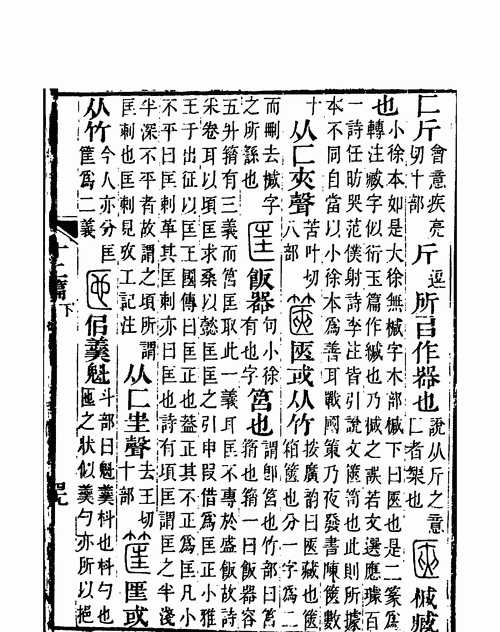 匚斤會意疾亮切十部斤逗所㠯作器也說从斤之意匚者榘也匧椷臧
也小徐本如是大徐無椷字木部椷下曰匧也是二篆爲
轉注臧字似衍玉篇作緘也乃椷之誤若文選應璩百
一詩任昉哭范僕射詩李注皆引說文匧笥也此則所據
本不同自當以小徐本爲善耳戰國策乃夜發書陳篋數
十从匚夾聲苦叶切八部篋匧或从竹按廣韵曰匧藏也篋箱篋也分一字爲二
而刪去椷字之所繇也匡飯器句小徐有也字筥也謂卽筥也竹部曰筥䈰也䈰一曰飯器容
五升䈰有三義而筥匡取此一義耳匡不專於盛飯故詩
采卷耳以頃匡求桑以懿匡匡之引申叚借爲匡正小雅
王于出征以匡王國傳曰匡正也葢正其不正爲匡凡小
不平曰匡剌革其匡剌亦曰匡也詩有頃匡謂匡之半淺
半深不平者故謂之頃所謂匡剌也匡剌見攷工記注从匚㞷聲去王切十部筐匡或
从竹今人亦分匡筐爲二義匜佀羹魁斗部曰魁羹枓也枓勺也匜之狀似羹勺亦所以挹
十二篇下